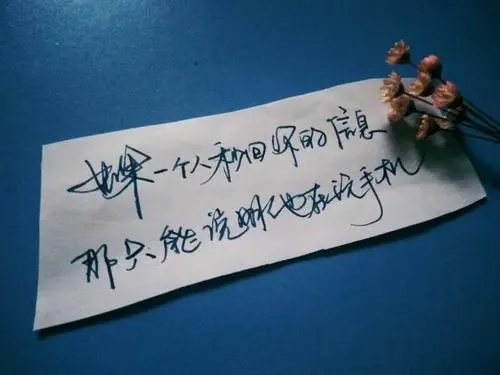 如果一个人秒回你的信息
那只能说明他在玩手机